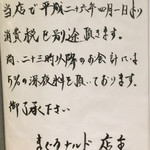 当店で平成二十六年四月一日より
消費税を別途頂きます。
尚、二十三時以降のお会計には
5%の深夜料を頂いております。
御了承下さい
まぐろナルド 店主